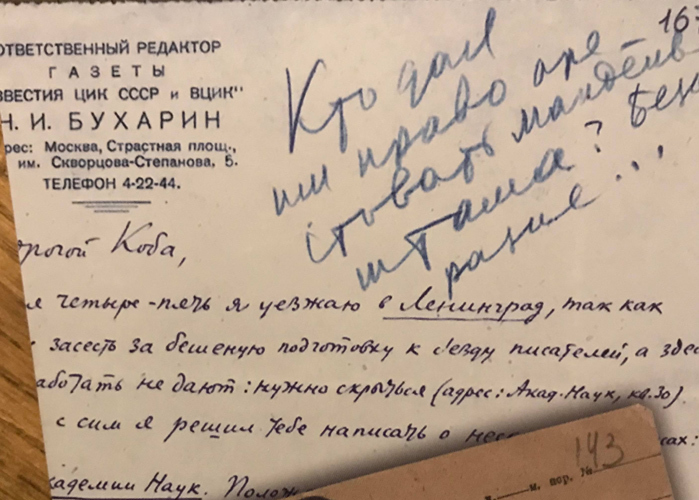 163
ОТВЕТСТВЕННЫЙ РЕДАКТОР
ГАЗЕТЫ
ЗВЕСТИЯ ЦИК СССР и ВЦИК"
Н. И. БУХАРИН
рес: Москва, Страстная площ.,
им. Скворцова-Степанова, 5.
ТЕЛЕФОН 4-22-44.
Кто дал
им право аре-
стовать Мандель-
штама? Безо-
разие...
рогой Коба,
я четыре-пять я уезжаю в Ленинград, так как
засесть за бешеную подготовку к съезду писателей, а здес
аботать не дают: нужно скрыться (адрес: Акад. Наук, кв. 30).
с сим я решил тебе написать о нес сах:
кадемии Наук. Полож
143
м. пор. №